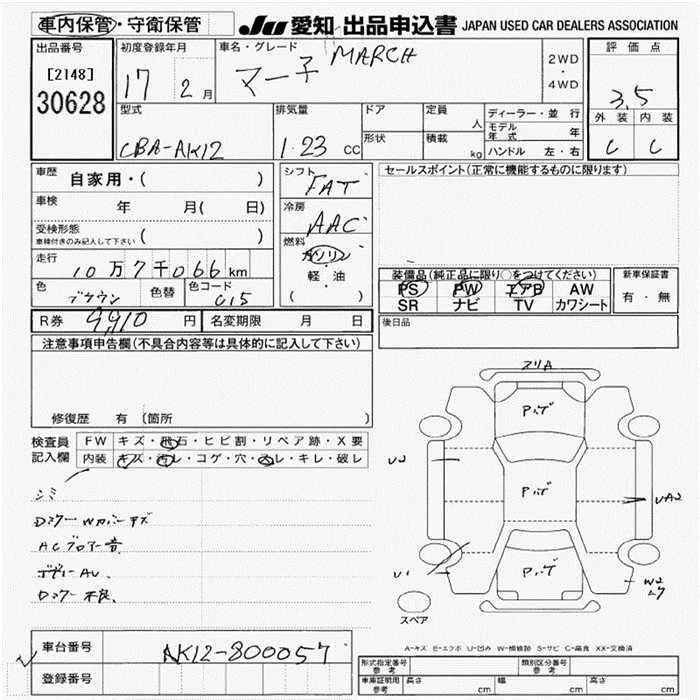 車内保管・守衛保管
JU 愛知 出品申込書 JAPAN USED CAR DEALERS ASSOCIATION
出品番号
[2148]
30628
初度登録年月
17 2月
車名・グレード
MARCH
2WD
・
4WD
評価点
3.5
外装 内装
C C
型式
CBA-AK12
排気量
1.23 CC
ドア
形状
定員 人
積載 kg
ディーラー・並行
モデル年式 年
ハンドル 左・右
車歴 自家用・( )
車検 年 月( 日)
受検形態
車検付きのみ記入して下さい ( )
走行
10万7千066km
色 ブラウン 色替 色コード C15
R券 9910 円 名変期限 月 日
シフト FAT
冷房 AAC
燃料
ガソリン
・
軽・油
( )
セールスポイント(正常に機能するものに限ります)
装備品(純正品に限り○をつけてください)
PS PW エアB AW
SR ナビ TV カワシート
新車保証書
有・無
後日品
注意事項申告欄(不具合内容等は具体的に記入して下さい)
修復歴 有 (箇所
検査員
記入欄
FW キズ・飛石・ヒビ割・リペア跡・X要
内装 キズ・汚レ・コゲ・穴・スレ・キレ・破レ
シミ
ACブロアー音
スリA
U2
UA2
U1
W2
スペア
A-キズ E-エクボ U-凹み W-補修跡 S-サビ C-腐食 XX-交換済
車台番号 AK12-800057
登録番号
形式指定番号
参考
類別区分番号
参考
車庫証明用
参考
長さ cm 幅 cm 高さ cm